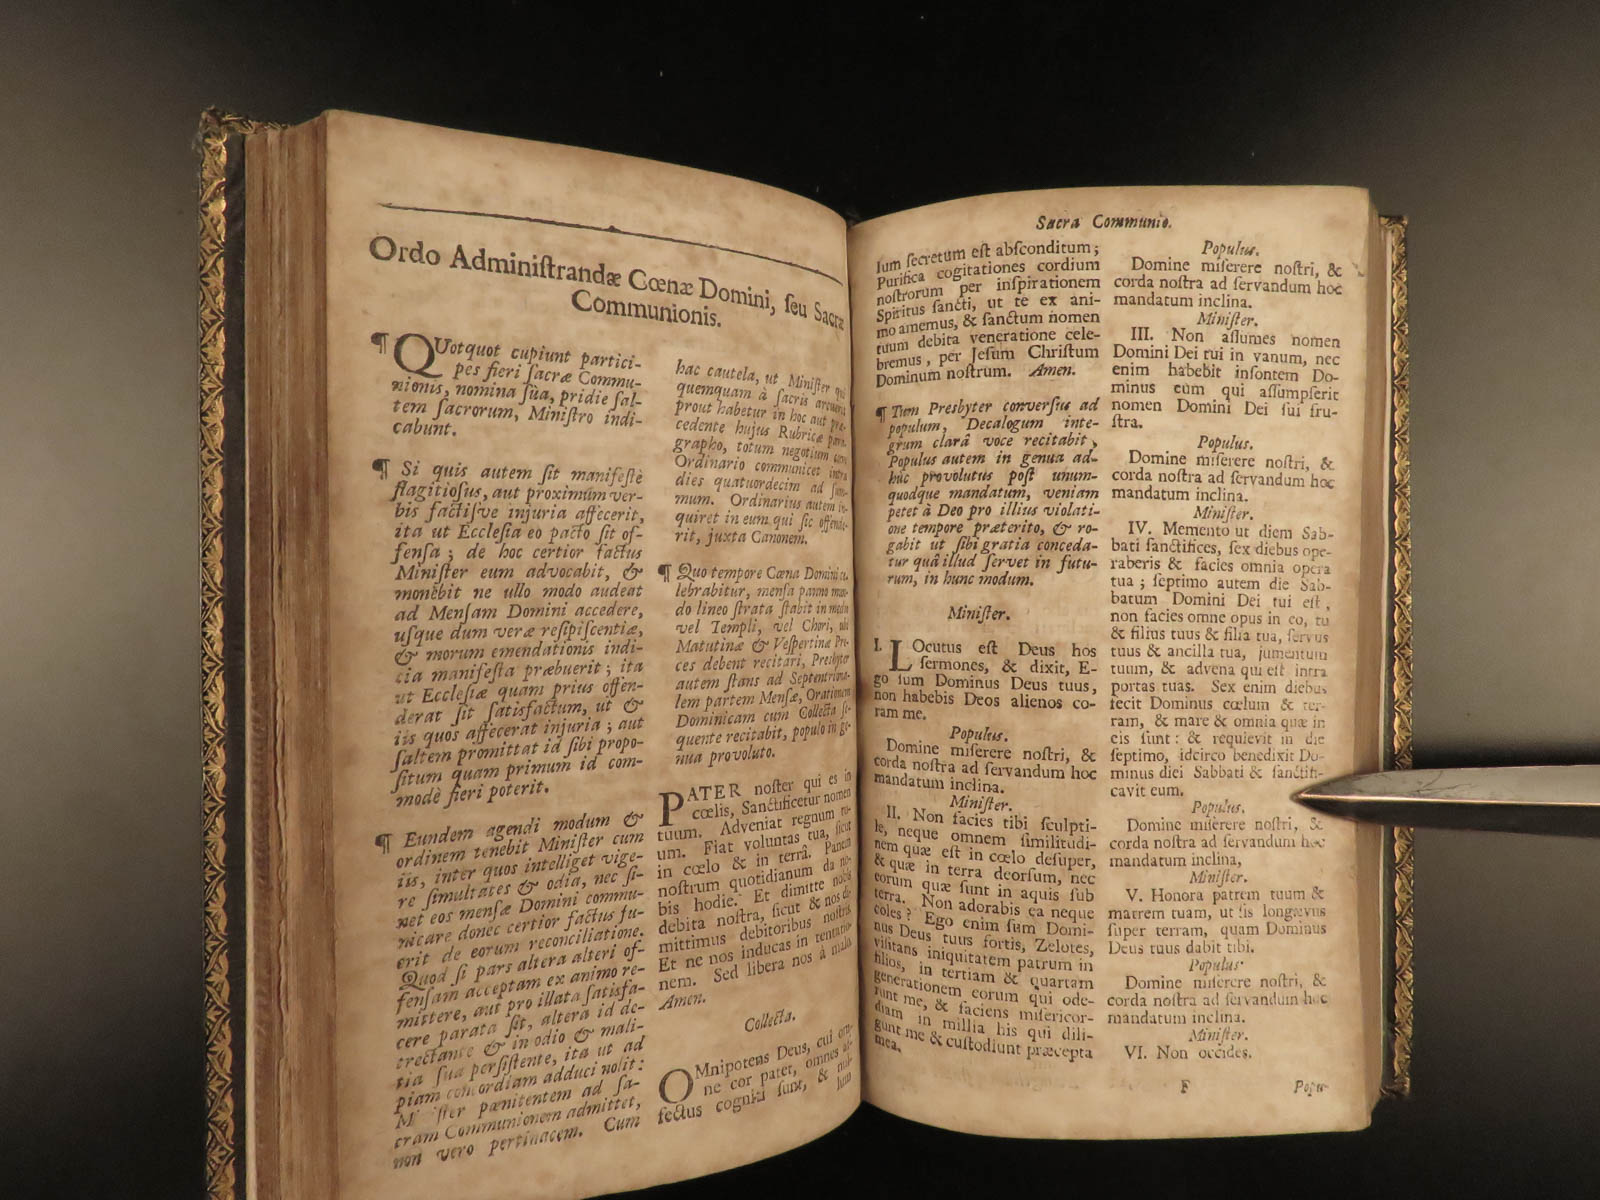 Ordo Adminiſtrandæ Cœnæ Domini, ſeu Sacræ
Communionis.
¶ QUotquot cupiunt partici-
pes fieri ſacræ Commu-
nionis, nomina ſua, pridie ſal-
tem ſacrorum, Miniſtro indi-
cabunt.
¶ Si quis autem ſit manifeſtè
flagitioſus, aut proximum ver-
bis factiſve injuria affecerit,
ita ut Eccleſia eo pacto ſit of-
fenſa; de hoc certior factus
Miniſter eum advocabit, &
monebit ne ullo modo audeat
ad Menſam Domini accedere,
uſque dum veræ reſipiſcentiæ,
& morum emendationis indi-
cia manifeſta præbuerit; ita
ut Eccleſiæ quam prius offen-
derat ſit ſatisfactum, ut &
iis quos affecerat injuria; aut
ſaltem promittat id ſibi propo-
ſitum quam primum id com-
modè fieri poterit.
¶ Eundem agendi modum &
ordinem tenebit Miniſter cum
iis, inter quos intelliget vige-
re ſimultates & odia, nec ſi-
net eos menſæ Domini commu-
nicare donec certior factus fu-
erit de eorum reconciliatione.
Quod ſi pars altera alteri of-
fenſam acceptam ex animo re-
mittere, aut pro illata ſatisfa-
cere parata ſit, altera id de-
trectante & in odio & mali-
tia ſua perſiſtente, ita ut ad
piam concordiam adduci nolit:
Miniſter pœnitentem ad ſa-
cram Communionem admittet,
non vero pertinacem. Cum
hac cautela, ut Miniſter qui
quemquam à ſacris arcuerit
prout habetur in hoc aut præ-
cedente hujus Rubricæ para-
grapho, totum negotium cum
Ordinario communicet intra
dies quatuordecim ad ſum-
mum. Ordinarius autem in-
quiret in eum qui ſic offende-
rit, juxta Canonem.
¶ Quo tempore Cœna Domini ce-
lebrabitur, menſa panno mun-
do lineo ſtrata ſtabit in medio
vel Templi, vel Chori, ubi
Matutinæ & Veſpertinæ Pre-
ces debent recitari, Presbyter
autem ſtans ad Septentriona-
lem partem Menſæ, Orationem
Dominicam cum Collecta ſe-
quente recitabit, populo in ge-
nua provoluto.
PATER noſter qui es in
cœlis, Sanctificetur nomen
tuum. Adveniat regnum tu-
um. Fiat voluntas tua, ſicut
in cœlo & in terrâ. Panem
noſtrum quotidianum da no-
bis hodie. Et dimitte nobis
debita noſtra, ſicut & nos di-
mittimus debitoribus noſtris.
Et ne nos inducas in tentatio-
nem. Sed libera nos à malo.
Amen.
Collecta.
OMnipotens Deus, cui om-
ne cor patet, omnes af-
fectus cogniti ſunt, & nul-
lum
Sacra Communio.
lum ſecretum eſt abſconditum;
Purifica cogitationes cordium
noſtrorum per inſpirationem
Spiritus ſancti, ut te ex ani-
mo amemus, & ſanctum nomen
tuum debita veneratione cele-
bremus, per Jeſum Chriſtum
Dominum noſtrum. Amen.
¶ Tum Presbyter converſus ad
populum, Decalogum inte-
grum clarâ voce recitabit,
Populus autem in genua ad-
huc provolutus poſt unum-
quodque mandatum, veniam
petet à Deo pro illius violati-
one tempore præterito, & ro-
gabit ut ſibi gratia conceda-
tur quâ illud ſervet in futu-
rum, in hunc modum.
Miniſter.
I. LOcutus eſt Deus hos
ſermones, & dixit, E-
go ſum Dominus Deus tuus,
non habebis Deos alienos co-
ram me.
Populus.
Domine miſerere noſtri, &
corda noſtra ad ſervandum hoc
mandatum inclina.
Miniſter.
II. Non facies tibi ſculpti-
le, neque omnem ſimilitudi-
nem quæ eſt in cœlo deſuper,
& quæ in terra deorſum, nec
eorum quæ ſunt in aquis ſub
terra. Non adorabis ea neque
coles? Ego enim ſum Domi-
nus Deus tuus fortis, Zelotes,
viſitans iniquitatem patrum in
filios, in tertiam & quartam
generationem eorum qui ode-
runt me, & faciens miſericor-
diam in millia his qui dili-
gunt me & cuſtodiunt præcepta
mea.
Populus.
Domine miſerere noſtri, &
corda noſtra ad ſervandum hoc
mandatum inclina.
Miniſter.
III. Non aſſumes nomen
Domini Dei tui in vanum, nec
enim habebit inſontem Do-
minus eum qui aſſumpſerit
nomen Domini Dei ſui fru-
ſtra.
Populus.
Domine miſerere noſtri, &
corda noſtra ad ſervandum hoc
mandatum inclina.
Miniſter.
IV. Memento ut diem Sab-
bati ſanctifices, ſex diebus ope-
raberis & facies omnia opera
tua; ſeptimo autem die Sab-
batum Domini Dei tui eſt,
non facies omne opus in eo, tu
& filius tuus & filia tua, ſervus
tuus & ancilla tua, jumentum
tuum, & advena qui eſt intra
portas tuas. Sex enim diebus
fecit Dominus cœlum & ter-
ram, & mare & omnia quæ in
eis ſunt: & requievit in die
ſeptimo, idcirco benedixit Do-
minus diei Sabbati & ſanctifi-
cavit eum.
Populus.
Domine miſerere noſtri, &
corda noſtra ad ſervandum hoc
mandatum inclina,
Miniſter.
V. Honora patrem tuum &
matrem tuam, ut ſis longævus
ſuper terram, quam Dominus
Deus tuus dabit tibi.
Populus.
Domine miſerere noſtri, &
corda noſtra ad ſervandum hoc
mandatum inclina.
Miniſter.
VI. Non occides.
F Popu-